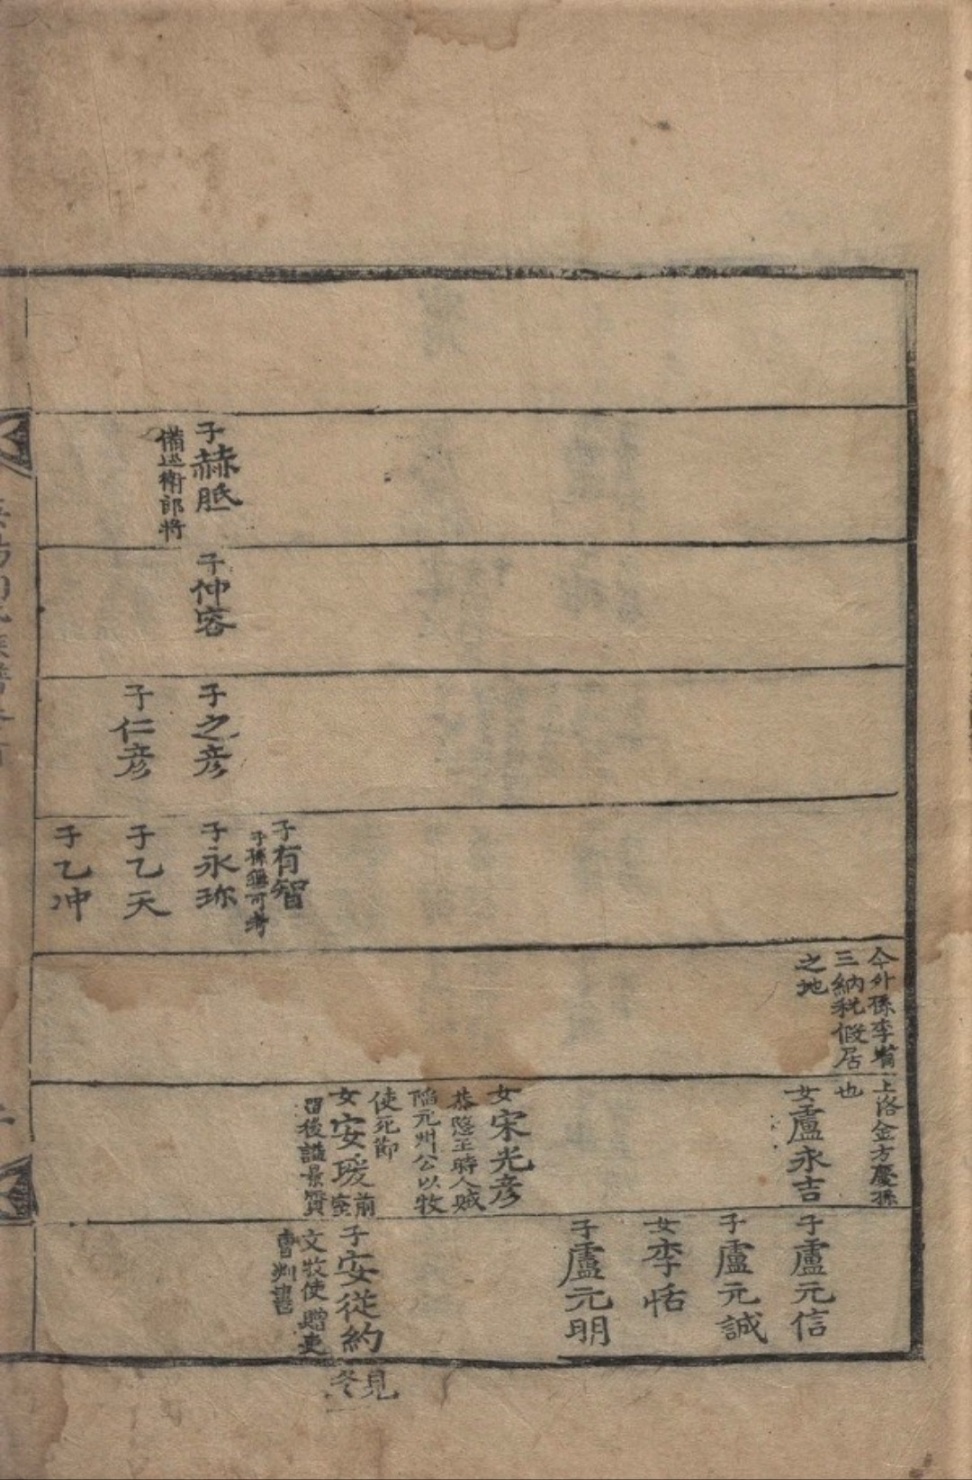 子赫胝
備巡衛郎将
子仲容
子之彦
子仁彦
子有智
子孫無可考
子永珎
子乙天
子乙冲
今外孫李
三納税假居
之地
上洛金方慶孫
也
女盧永吉
女宋光彦
恭愍王時人賊
陷元州公以牧
使死節
女安瑗前
密
留後謚景質
子盧元信
子盧元誠
女李恬
子盧元明
子安従約
文牧使贈吏
曹判書
見
冬
族譜